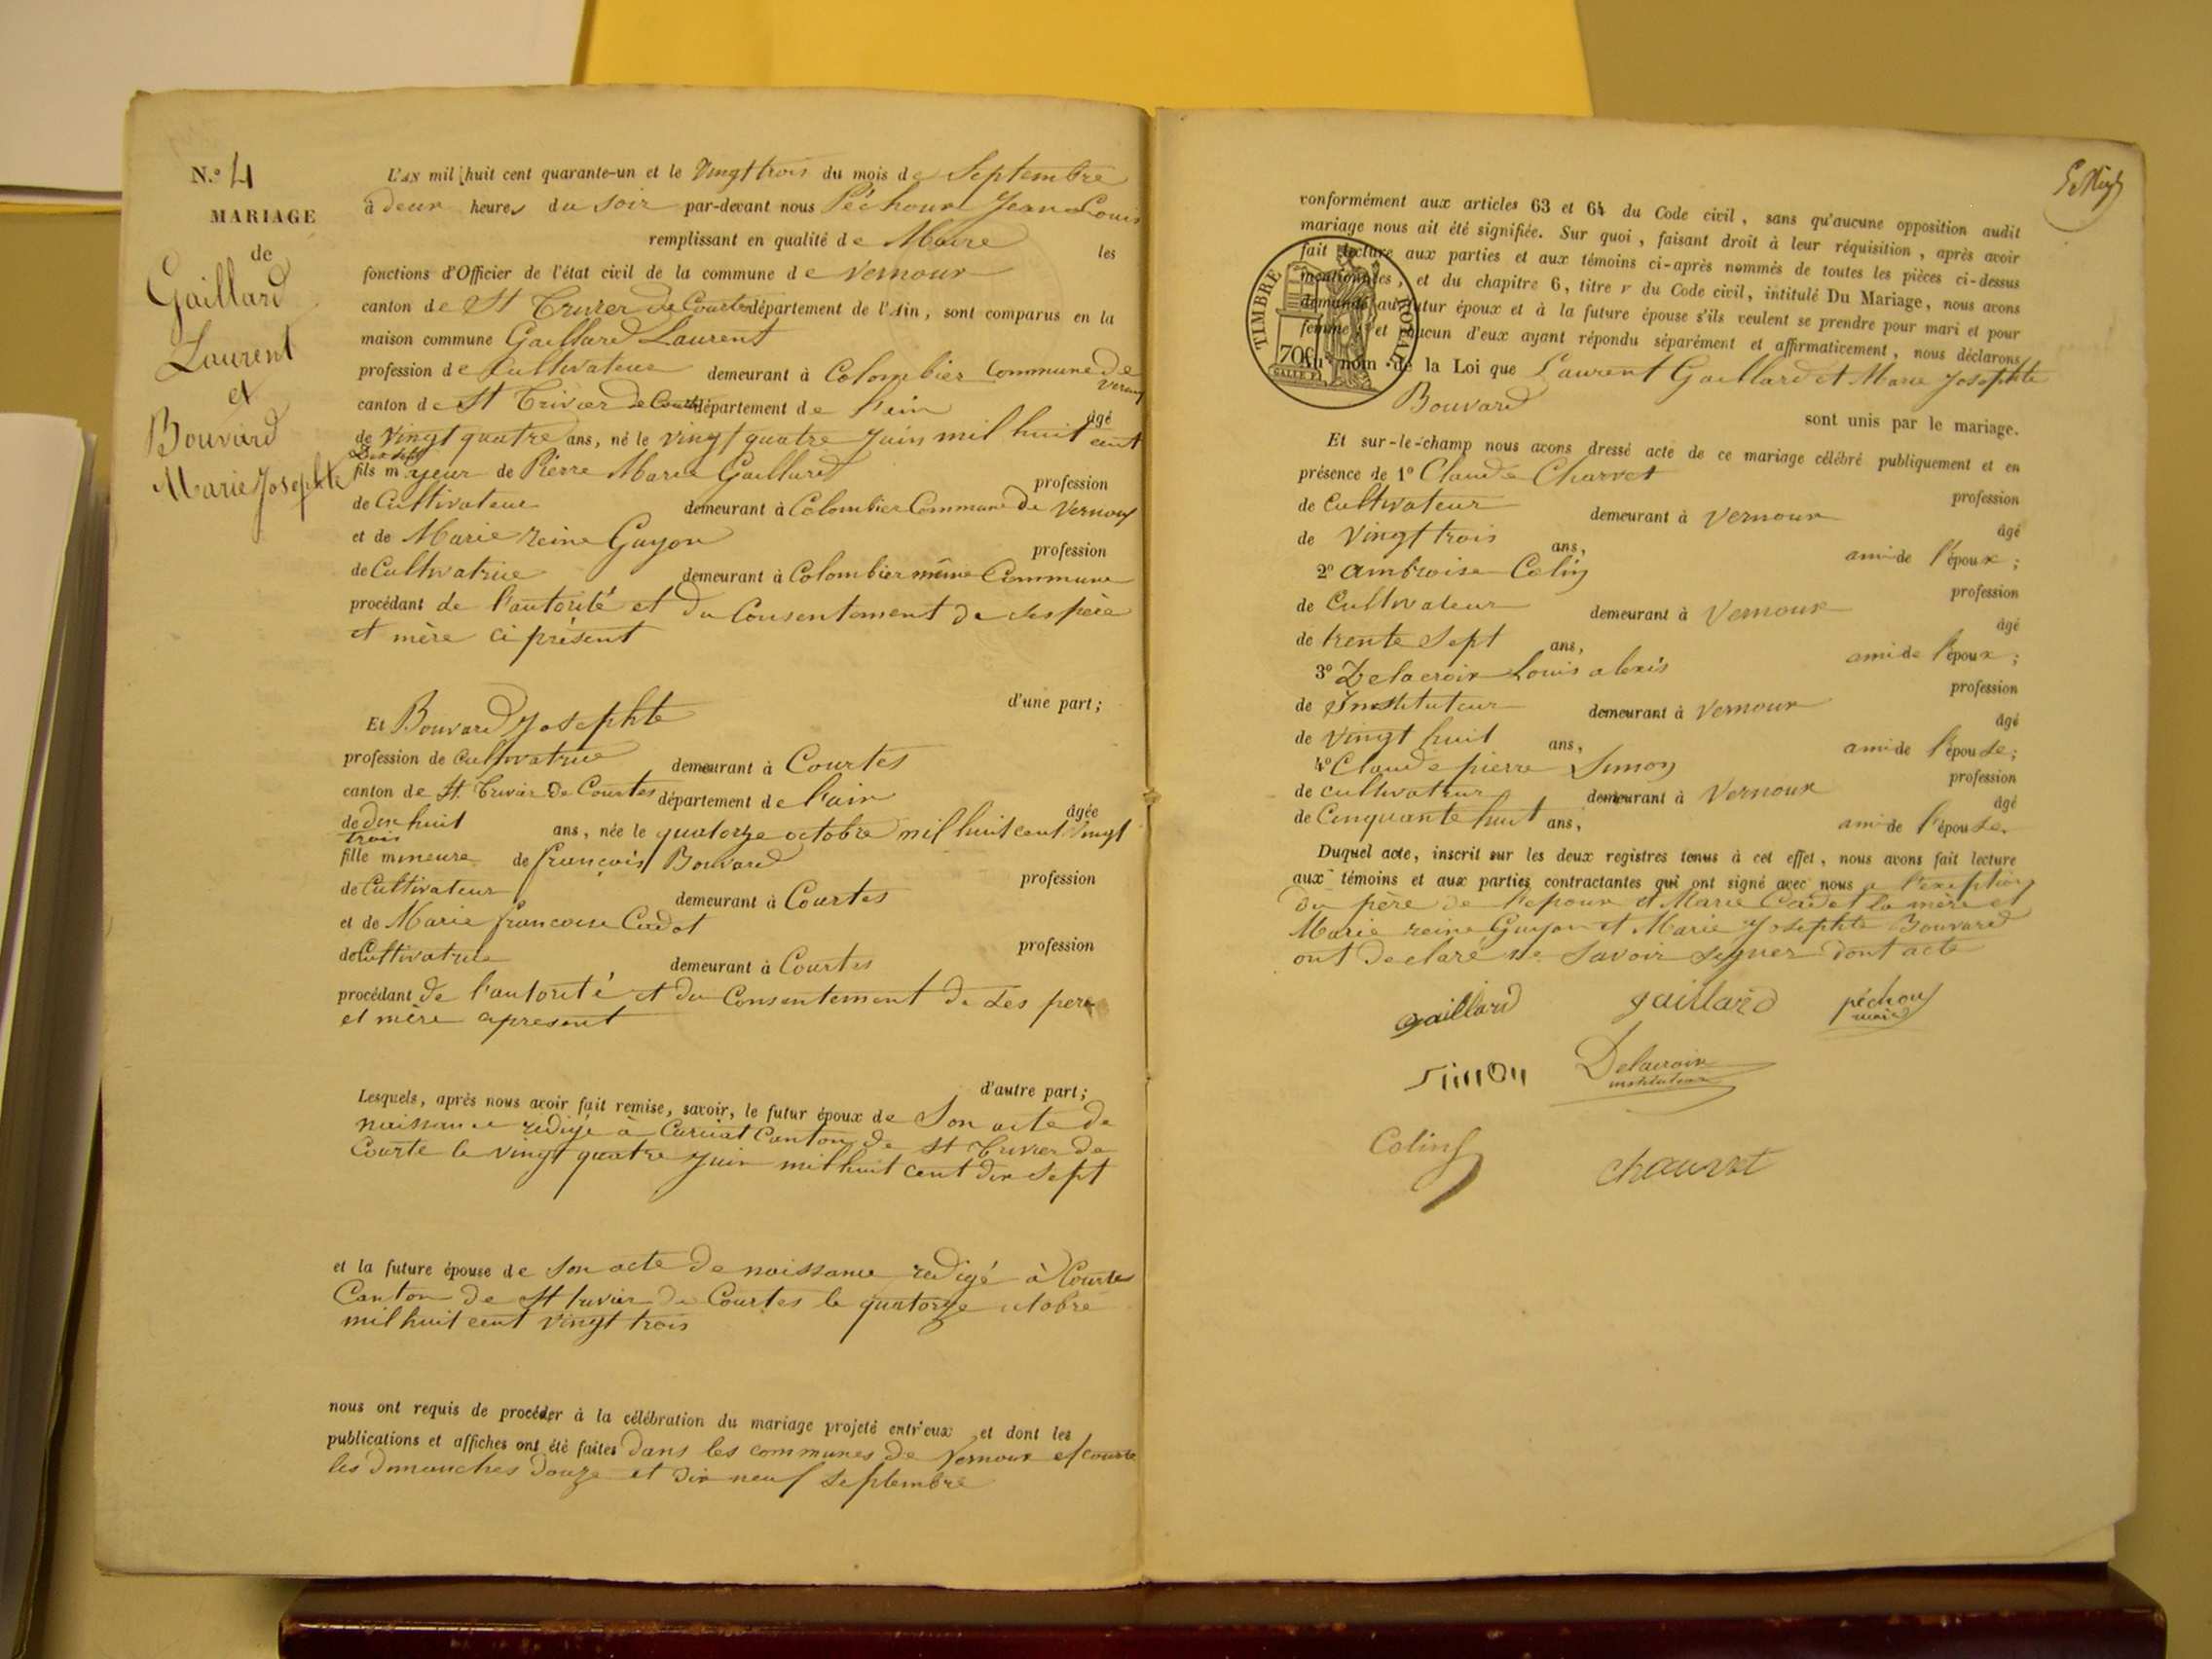 N.º 4
MARIAGE
de
Gaillard
Laurent
et
Bouvard
Marie Josephte
L'AN mil huit cent quarante-un et le Vingt trois du mois de Septembre
à deux heures du soir par-devant nous Péchoux Jean Louis
remplissant en qualité de Maire les
fonctions d'Officier de l'état civil de la commune de Vernoux
canton de St Trivier de Courtes département de l'Ain, sont comparus en la
maison commune Gaillard Laurent
profession de Cultivateur demeurant à Colombier Commune de Vernoux
canton de St Trivier de Courtes département de l'ain âgé
de Vingt quatre ans, né le vingt quatre Juin mil huit cent
Dix sept
fils majeur de Pierre Marie Gaillard profession
de Cultivateur demeurant à Colombier Commune de Vernoux
et de Marie reine Guyon profession
de Cultivatrice demeurant à Colombier même Commune
procédant de l'autorité et du Consentement de ses père
et mère ci présent
d'une part;
Et Bouvard Josephte
profession de Cultivatrice demeurant à Courtes
canton de St. Trivier de Courtes département de l'ain âgée
de dix huit ans, née le quatorze octobre mil huit cent vingt
trois
fille mineure de françois Bouvard profession
de Cultivateur demeurant à Courtes
et de Marie francoise Cadot profession
de Cultivatrice demeurant à Courtes
procédant de l'autorité et du Consentement de ses pere
et mère apresent
d'autre part;
Lesquels, après nous avoir fait remise, savoir, le futur époux de Son acte de
naissance redigé à Curciat Canton de St Trivier de
Courte le vingt quatre Juin mil huit cent dix sept
et la future épouse de Son acte de naissance redigé à Courtes
Canton de St trivier de Courtes le quatorze octobre
mil huit cent vingt trois
nous ont requis de procéder à la célébration du mariage projeté entr'eux et dont les
publications et affiches ont été faites dans les communes de Vernoux et courte
les dimanches douze et dix neuf septembre
conformément aux articles 63 et 64 du Code civil, sans qu'aucune opposition audit
mariage nous ait été signifiée. Sur quoi, faisant droit à leur réquisition, après avoir
fait lecture aux parties et aux témoins ci-après nommés de toutes les pièces ci-dessus
mentionnées, et du chapitre 6, titre v du Code civil, intitulé Du Mariage, nous avons
demandé au futur époux et à la future épouse s'ils veulent se prendre pour mari et pour
femme; et chacun d'eux ayant répondu séparément et affirmativement, nous déclarons
au nom de la Loi que Laurent Gaillard et Marie Josephte
Bouvard
sont unis par le mariage.
TIMBRE ROYAL
70c
Et sur-le-champ nous avons dressé acte de ce mariage célébré publiquement et en
présence de 1º Claude Charvet profession
de Cultivateur demeurant à Vernoux âgé
de Vingt trois ans, ami de l'époux;
2º ambroise Colin profession
de Cultivateur demeurant à Vernoux âgé
de trente Sept ans, ami de l'époux;
3º Delacroix Louis alexis profession
de Instituteur demeurant à Vernoux âgé
de Vingt huit ans, ami de l'épouse;
4º Claude pierre Simon profession
de cultivateur demeurant à Vernoux âgé
de Cinquante huit ans, ami de l'épouse.
Duquel acte, inscrit sur les deux registres tenus à cet effet, nous avons fait lecture
aux témoins et aux parties contractantes qui ont signé avec nous a l'exeption
du père de l'epoux et Marie Cadot la mère et
Marie reine Guyon et Marie Josephte Bouvard
ont declaré ne Savoir Signer dont acte
gaillard gaillard péchoux
maire
Simon Delacroix
instituteur
Colin chauvet